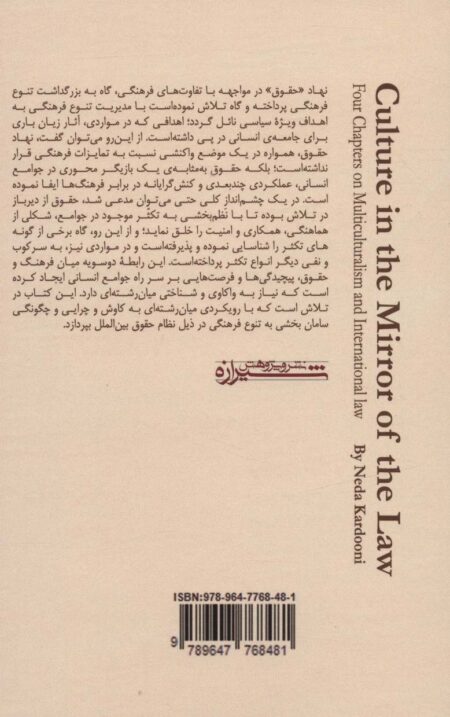 نهاد «حقوق» در مواجهه با تفاوت‌های فرهنگی، گاه به بزرگداشت تنوع
فرهنگی پرداخته و گاه تلاش نموده‌است با مدیریت تنوع فرهنگی به
اهداف ویژهٔ سیاسی نائل گردد؛ اهدافی که در مواردی، آثار زیان باری
برای جامعه‌ی انسانی در پی داشته‌است. از این‌رو می‌توان گفت، نهاد
حقوق، همواره در یک موضع واکنشی نسبت به تمایزات فرهنگی قرار
نداشته‌است؛ بلکه حقوق به‌مثابه‌ی یک بازیگر محوری در جوامع
انسانی، عملکردی چندبعدی و کنش‌گرایانه در برابر فرهنگ‌ها ایفا نموده
است. در یک چشم‌انداز کلی حتی می‌توان مدعی شد، حقوق از دیرباز
در تلاش بوده تا با نظم‌بخشی به تکثر موجود در جوامع، شکلی از
هماهنگی، همکاری و امنیت را خلق نماید؛ و از این رو، گاه برخی از گونه
های تکثر را شناسایی نموده و پذیرفته‌است و در مواردی نیز، به سرکوب
و نفی دیگر انواع تکثر پرداخته‌است. این رابطهٔ دوسویه میان فرهنگ و
حقوق، پیچیدگی‌ها و فرصت‌هایی بر سر راه جوامع انسانی ایجاد کرده
است که نیاز به واکاوی و شناختی میان‌رشته‌ای دارد. این کتاب در
تلاش است که با رویکردی میان‌رشته‌ای به کاوش و چرایی و چگونگی
سامان بخشی به تنوع فرهنگی در ذیل نظام حقوق بین‌الملل بپردازد.
نشر و پژوهش
شیرازه
Culture in the Mirror of the Law
Four Chapters on Multiculturalism and International law
By Neda Kardooni
ISBN:978-964-7768-48-1
9 789647 768481